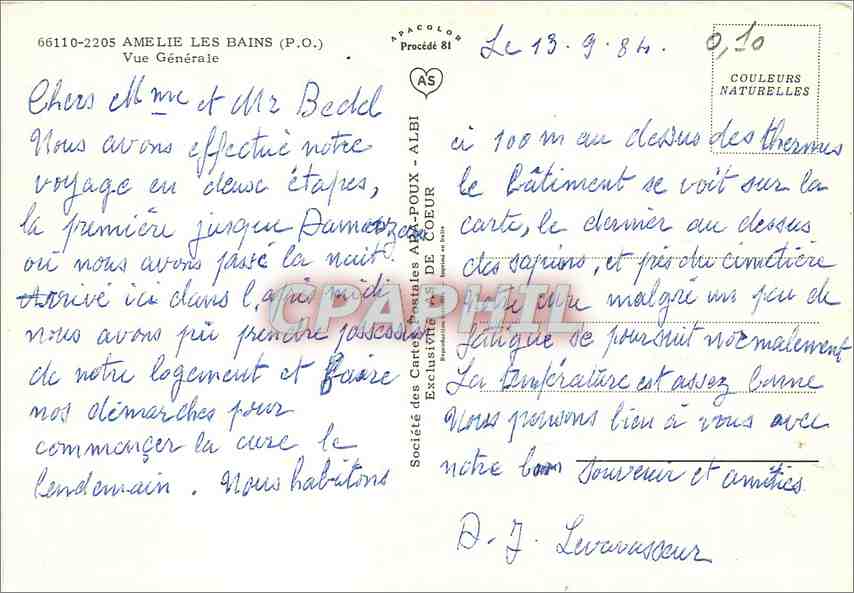 66110-2205 AMELIE LES BAINS (P.O.)
Vue Générale
Chers Mme et Mr Bedel
Nous avons effectué notre
voyage en deuse étapes,
la première jusque
où nous avons passé la nuit.
Arrivé ici dans l'après midi
nous avons pû prendre possession
de notre logement et faire
nos démarches pour
commençer la cure le
lendemain. Nous habitons
APACOLOR
Procédé 81
AS
Société des Cartes Postales APA-POUX - ALBI
Exclusivité AS DE COEUR
Reproduction Imprimé en Italie
CPAPHIL
Le 13.9.84.
0,10
COULEURS
NATURELLES
ci 100 m au dessus des thermes
le bâtiment se voit sur la
carte, le dernier au dessus
des sapins, et près du cimetière
notre cure malgré un peu de
fatigue se poursuit normalement
La température est assez bonne
Nous pensons bien à vous avec
notre bon souvenir et amitiés
D. J. Levavasseur